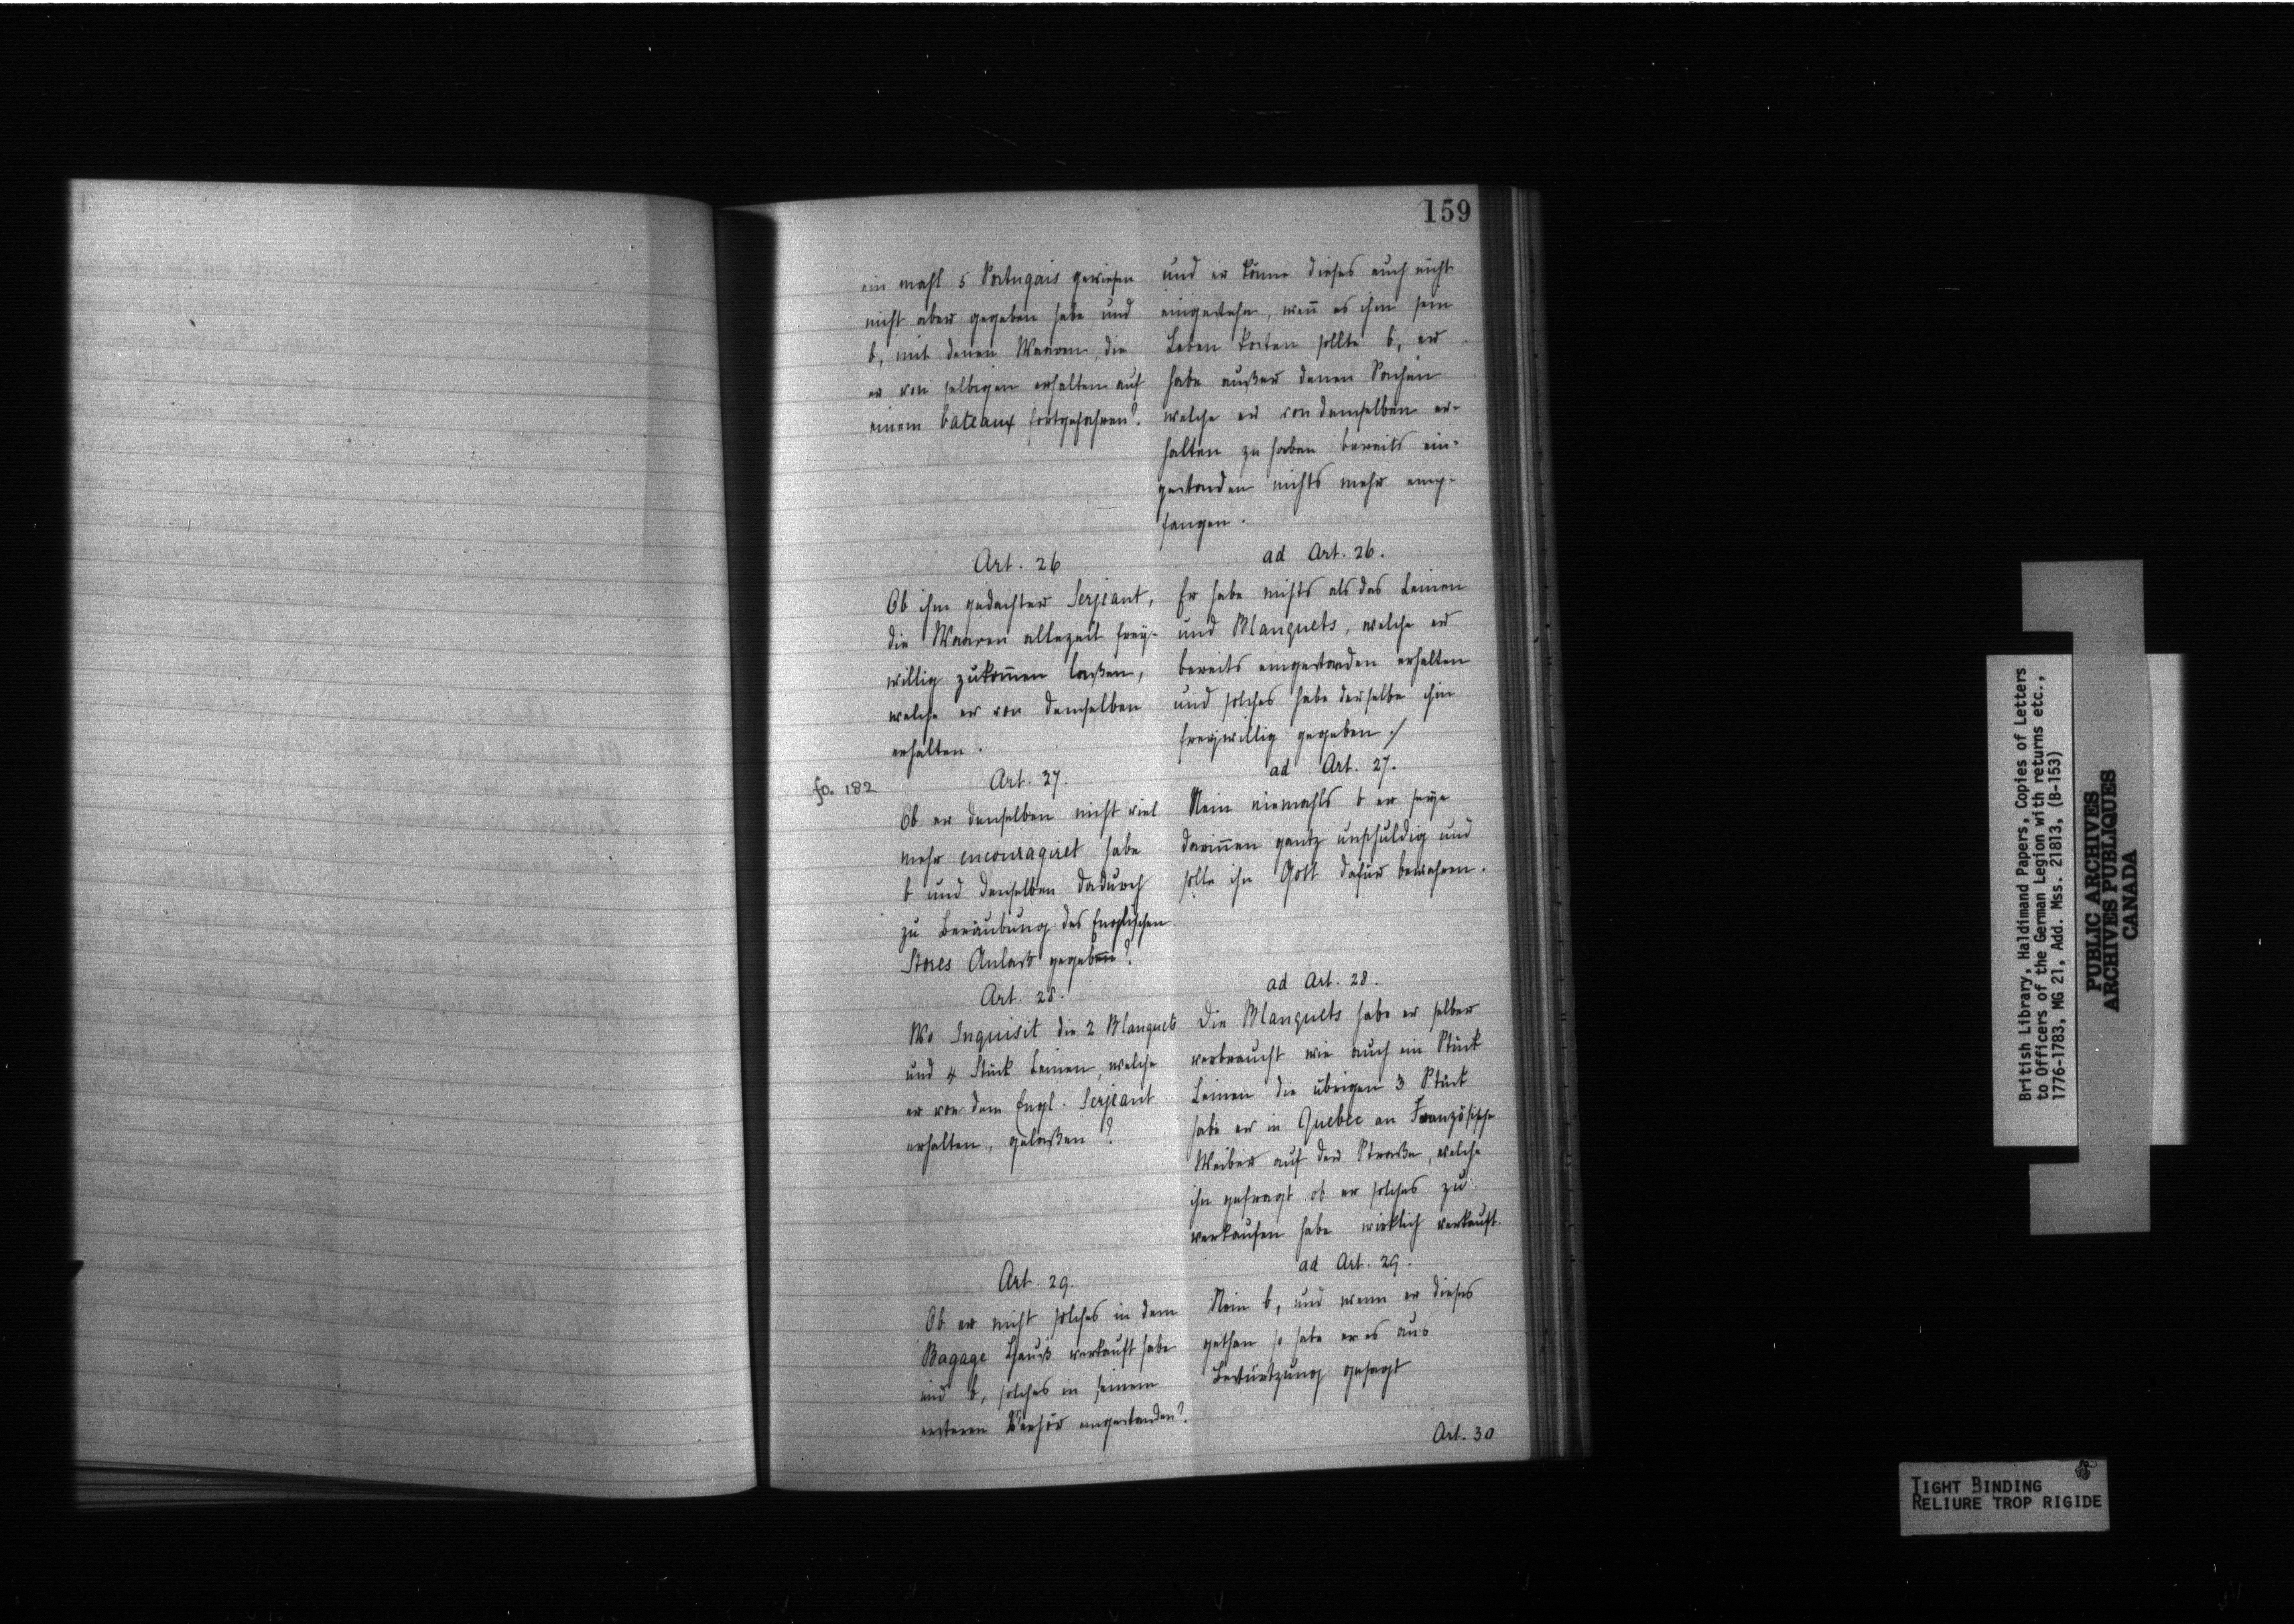 159
ein mahl 5 Portugais gewiesen
nicht aber gegeben habe und
b, mit denen Waaren, die
er von selbigen erhalten auf
einem bateaux fortgefahren?
und er könne dieses auch nicht
eingestehn, weñ es ihm sein
Leben kosten sollte b, er
habe außer denen Sachen
welche er von demselben er-
halten zu haben bereits ein-
gestanden nichts mehr emp-
fangen.
Art. 26
Ob ihm gedachter Serjeant,
die Waaren allezeit frey-
willig zukom̃en laßen,
welche er von demselben
erhalten.
ad Art. 26.
Er habe nichts als das Leinen
und Blanquets, welche er
bereits eingestanden erhalten
und solches habe derselbe ihm
freywillig gegeben ./
fo. 182
Art. 27.
Ob er denselben nicht viel
mehr encouragiret habe
b und denselben dadurch
zu Beraubung des Englischen
Stores Anlaß gegeben?
ad Art. 27.
Nein niemahls b er seye
dariñen gantz unschuldig und
solle ihn Gott dafür bewahren.
Art. 28.
Wo Inquisit die 2 Blanquets
und 4 Stück Leinen, welche
er von dem Engl. Serjeant
erhalten, gelaßen?
ad Art. 28.
Die Blanquets habe er selber
verbraucht wie auch ein Stück
Leinen die übrigen 3 Stück
habe er in Quebec an Französische
Weiber auf der Straße, welche
ihn gefragt ob er solches zu
verkaufen habe wirklich verkauft.
Art. 29.
Ob er nicht solches in dem
Bagage Hauß verkauft habe
und b, solches in seinem
ersteren Verhör eingestanden?
ad Art. 29.
Nein b, und wenn er dieses
gethan so habe er es aus
Bestürtzung gesagt
Art. 30
British Library, Haldimand Papers, Copies of Letters
to Officers of the German Legion with returns etc.,
1776-1783, MG 21, Add. Mss. 21813, (B-153)
PUBLIC ARCHIVES
ARCHIVES PUBLIQUES
CANADA
TIGHT BINDING
RELIURE TROP RIGIDE